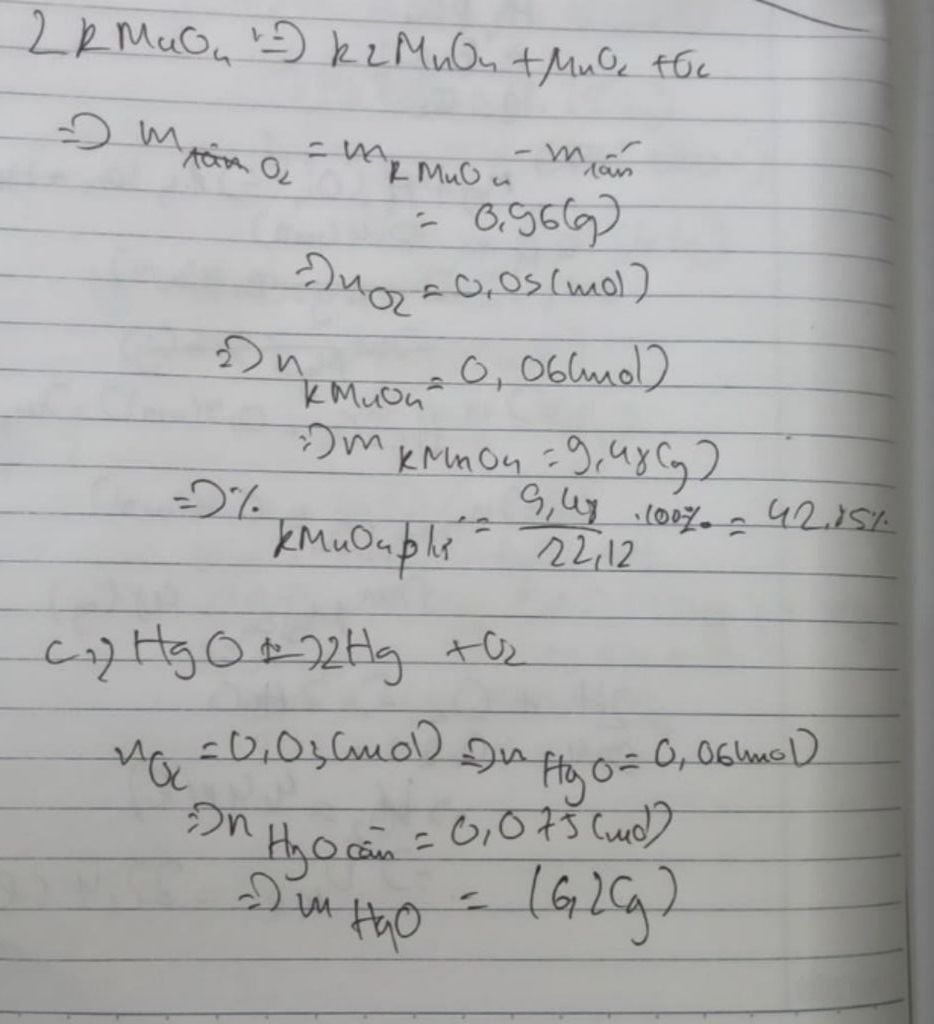 2KMnO4 t°=> K2MnO4 + MnO2 + O2
=> m O2 = m KMnO4 - m rắn
= 0,96(g)
=> n O2 = 0,03(mol)
=> n KMnO4 = 0,06(mol)
=> m KMnO4 = 9,48(g)
=> % KMnO4 phí = 9,48/22,12 .100% = 42,85%
c, 2HgO t-> 2Hg + O2
n O2 = 0,03(mol) => n HgO = 0,06(mol)
=> n HgO cần = 0,075(mol)
=> m HgO = 16,2(g)